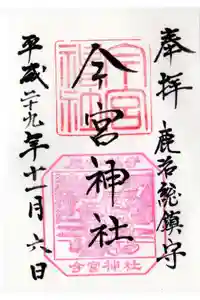 奉拝
鹿沼総鎮守
今宮神社
今宮神社
平成二十九年十一月六日
今宮神社